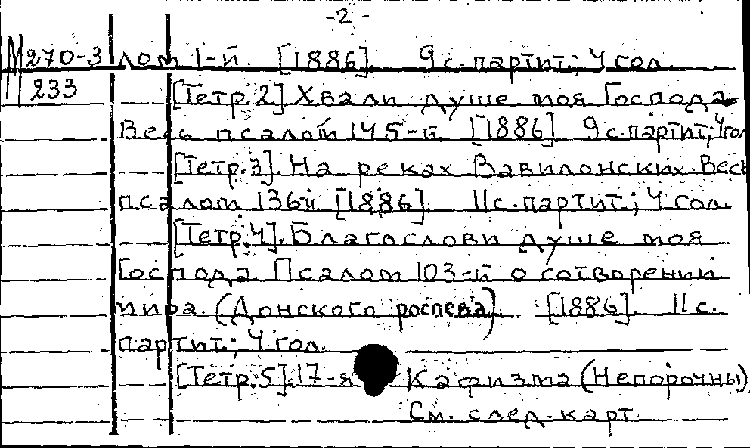 -2-
М270-3 лом 1-й. [1886]. 9 с. партит.; 4 гол.
233 [Тетр.2] Хвали душе моя Господа
Весь псалом 145-й. [1886]. 9 с. партит.; 4 гол
[Тетр.3]. На реках Вавилонских. Весь
псалом 136й [1886]. 11 с. партит.; 4 гол.
[Тетр.4]. Благослови душе моя
Господа. Псалом 103-й о сотворении
мира. (Донского роспева). [1886]. 11 с.
партит.; 4 гол.
[Тетр.5]. 17-я Кафизма (Непорочны)
См. след. карт.